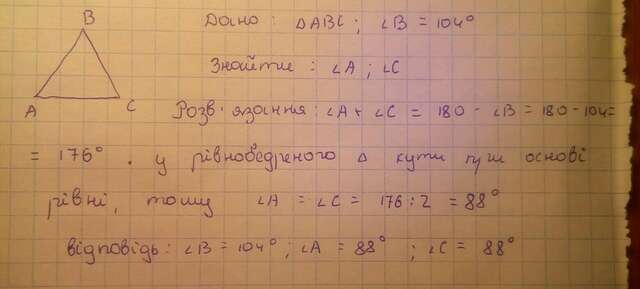 B
Дано: △ABC; ∠B = 104°
Знайти: ∠A; ∠C
A C
Розв'язання: ∠A + ∠C = 180 - ∠B = 180 - 104 =
= 176°. у рівнобедреного △ кути при основі
рівні, тому ∠A = ∠C = 176 : 2 = 88°
відповідь: ∠B = 104°; ∠A = 88°; ∠C = 88°